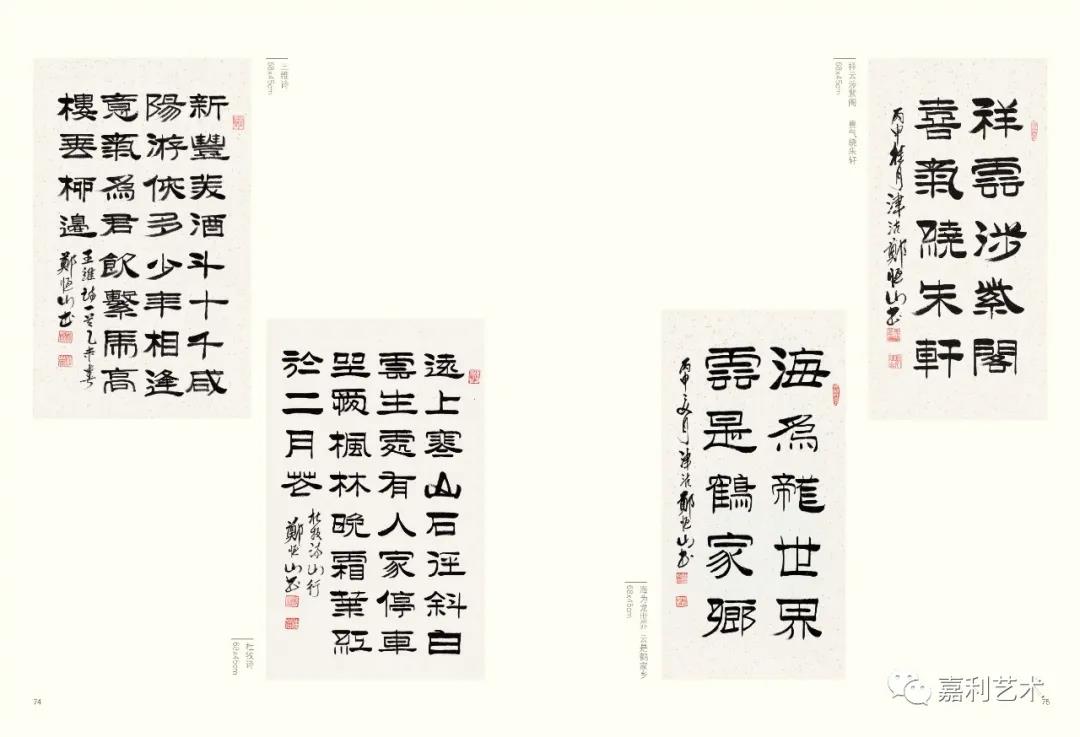 新豐美酒斗十千咸
陽游俠多少年相逢
意氣為君飲繫馬高
樓垂柳邊
王維詩一首乙未春
鄭恒山書
王维诗
68x45cm
遠上寒山石徑斜白
雲生處有人家停車
坐愛楓林晚霜葉紅
於二月花
杜牧詩山行
鄭恒山書
杜牧诗
68x45cm
74
祥雲涉紫閣
喜氣繞朱軒
丙申桂月津沽鄭恒山書
祥云涉紫阁 喜气绕朱轩
68x45cm
海為龍世界
雲是鶴家鄉
丙申夏月津沽鄭恒山書
海为龙世界 云是鹤家乡
68x45cm
嘉利艺术
75